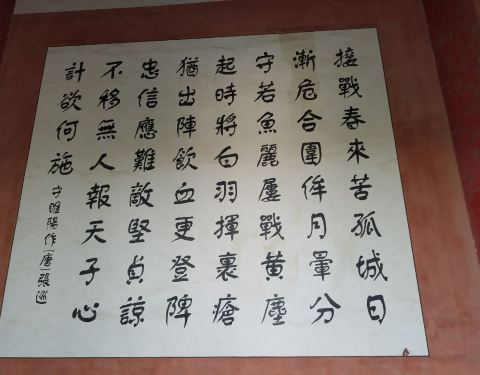 接戰春來苦孤城日
漸危合圍侔月暈分
守若魚麗屢戰黃塵
起時將白羽揮裹瘡
猶出陣飲血更登陴
忠信應難敵堅貞諒
不移無人報天子心
計欲何施 守睢陽作[唐]張巡